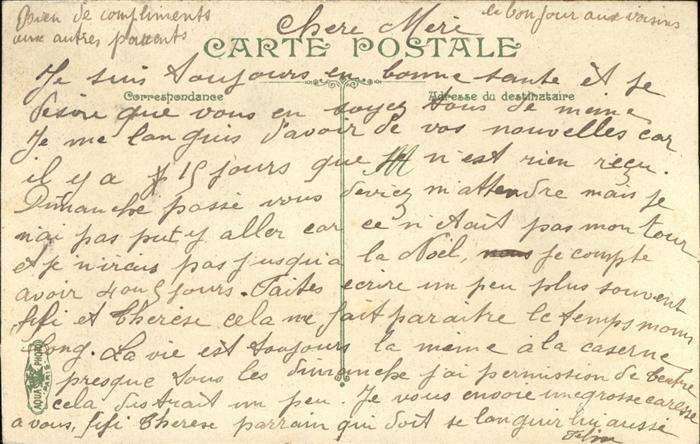 Bien de compliments
aux autres parents
le bonjour aux voisins
Chere Mere
CARTE POSTALE
Je suis toujours en bonne sante et je
Correspondance
Adresse du destinataire
désire que vous en soyez tous de meme
Je me languis d'avoir de vos nouvelles car
il y a 15 jours que je n'est rien reçu.
Dimanche passé vous deviez m'attendre mais je
n'ai pas put y aller car ce n'était pas mon tour
et je n'irais pas jusqu'a la Noël, je compte
avoir 4 ou 5 jours. Faites ecrire un peu plus souvent
fifi et Therese cela me fait paraitre le temps moins
long. La vie est toujours la meme a la caserne
AQUA PHOTO
PARIS
presque tous les dimanche j'ai permission de
cela distrait un peu. Je vous envoie une grosse caresse
a vous, fifi Therese parrain qui doit se languir lui aussi